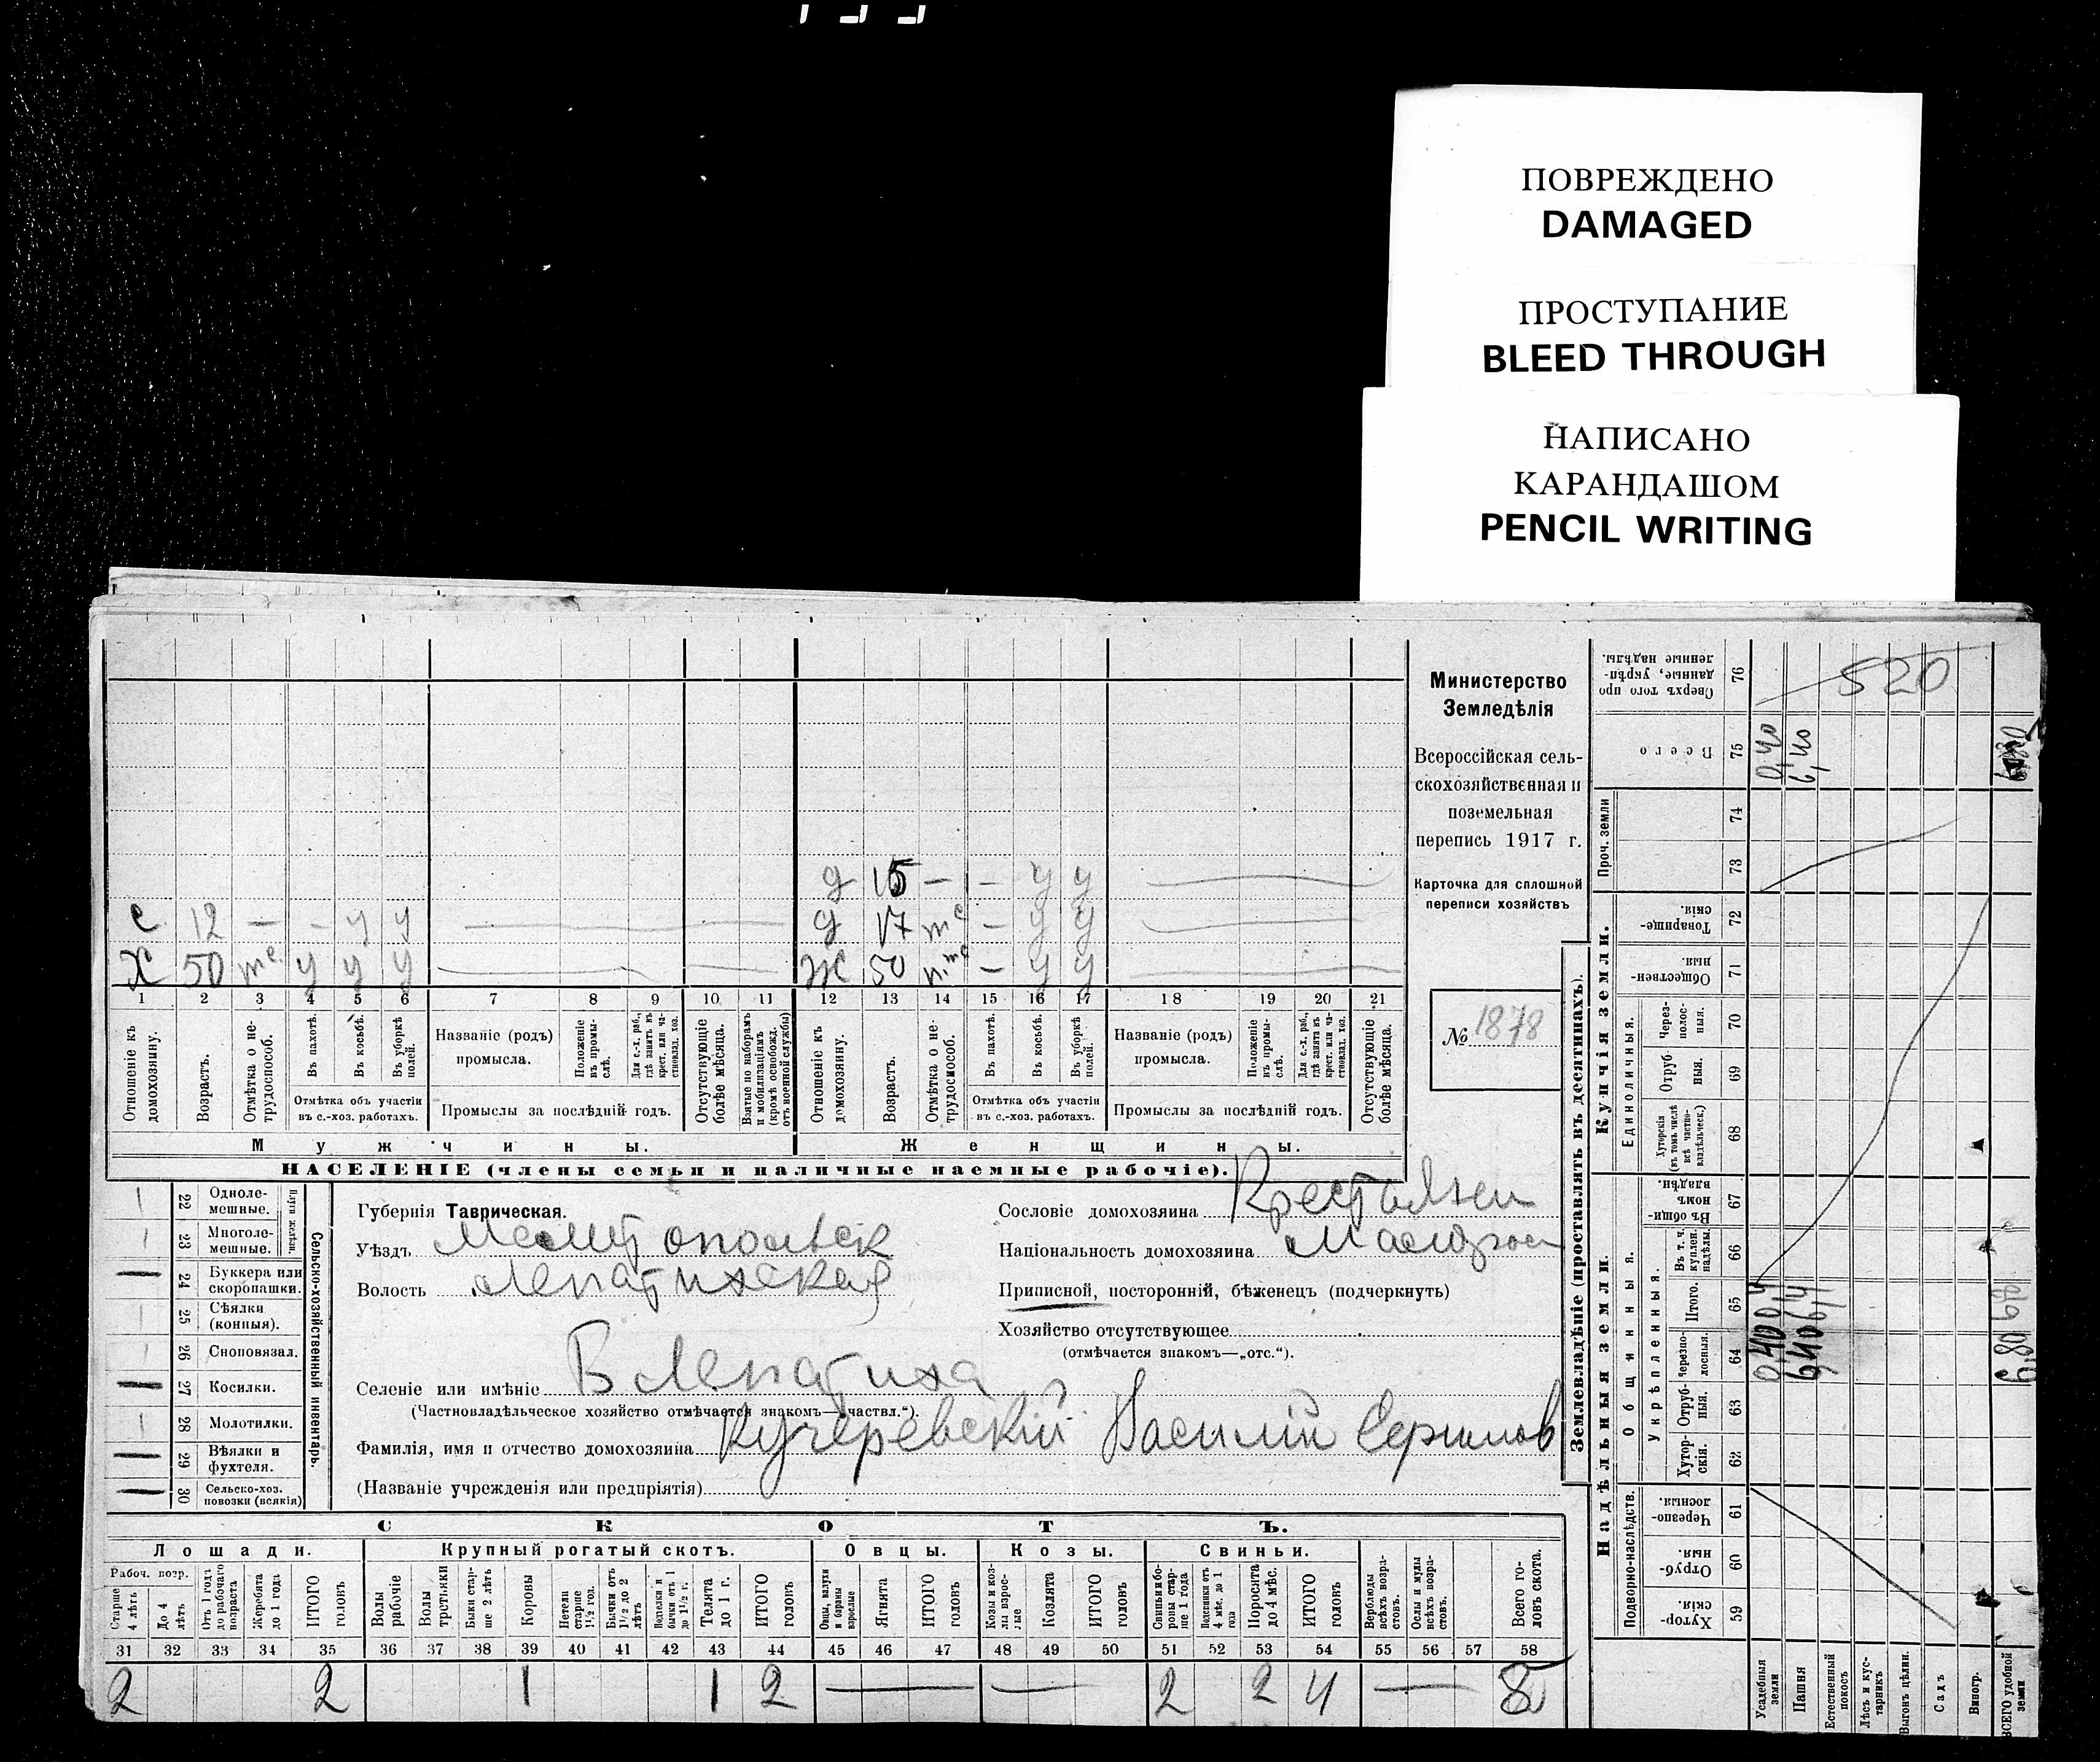 ПОВРЕЖДЕНО
DAMAGED
ПРОСТУПАНИЕ
BLEED THROUGH
НАПИСАНО
КАРАНДАШОМ
PENCIL WRITING
Министерство
Земледѣлія
Всероссійская сель-
скохозяйственная и
поземельная
перепись 1917 г.
Карточка для сплошной
переписи хозяйствъ
№ 1878
д 15 — — у у
с 12 — - у у
д 17 — у у
Х 50 у у у
Ж 50 — у у
1 2 3 4 5 6 7 8 9 10 11 12 13 14 15 16 17 18 19 20 21
Отношеніе къ домохозяину.
Возрастъ.
Отмѣтка о не-трудоспособ.
Въ пахотѣ.
Въ косьбѣ.
Въ уборкѣ полей.
Отмѣтка объ участіи
въ с.-хоз. работахъ.
Названіе (родъ)
промысла.
Положеніе въ промы-слѣ.
Для с.-х. раб., гдѣ занятъ въ крест. или ча-стновлад. хоз.
Промыслы за послѣдній годъ.
Отсутствующіе болѣе мѣсяца.
Взятые по наборамъ и мобилизаціямъ (кромѣ освобожд. отъ военной службы)
Отношеніе къ домохозяину.
Возрастъ.
Отмѣтка о не-трудоспособ.
Въ пахотѣ.
Въ косьбѣ.
Въ уборкѣ полей.
Отмѣтка объ участіи
въ с.-хоз. работахъ.
Названіе (родъ)
промысла.
Положеніе въ промы-слѣ.
Для с.-х. раб., гдѣ занятъ въ крест. или ча-стновлад. хоз.
Промыслы за послѣдній годъ.
Отсутствующіе болѣе мѣсяца.
Мужчины.
Женщины.
НАСЕЛЕНІЕ (члены семьи и наличные наемные рабочіе).
Сельско-хозяйственный инвентарь.
Плуги желѣзн.
22 Одноле-мешные.
23 Многоле-мешные.
24 Буккера или скоропашки.
25 Сѣялки (конныя).
26 Сноповязал.
27 Косилки.
28 Молотилки.
29 Вѣялки и фухтеля.
30 Сельско-хоз. повозки (всякія)
Губернія Таврическая.
Уѣздъ Мелитопольск
Волость Лепатихская
Селеніе или имѣніе В Лепатиха
(Частновладѣльческое хозяйство отмѣчается знакомъ—„частвл.“).
Фамилія, имя и отчество домохозяина Кучеревскій Василій
(Названіе учрежденія или предпріятія)
Сословіе домохозяина Крестьянин
Національность домохозяина Малорос
Приписной, посторонній, бѣженецъ (подчеркнуть)
Хозяйство отсутствующее
(отмѣчается знакомъ—„отс.“).
СКОТЪ.
Лошади.
Крупный рогатый скотъ.
Овцы.
Козы.
Свиньи.
Рабоч. возр.
Старше 4 лѣтъ
До 4 лѣтъ
Отъ 1 года до рабочаго возраста
Жеребята до 1 года
ИТОГО головъ
Волы рабочіе
Волы третьяки
Быки стар-ше 2 лѣтъ
Коровы
Нетели старше 1½ год.
Бычки отъ 1½ до 2 лѣтъ
Подтелки и бычки отъ 1 до 1½ г.
Телята до 1 г.
ИТОГО головъ
Овцы, валухи и бараны взрослые
Ягнята
ИТОГО головъ
Козы и коз-лы взрос-лые
Козлята
ИТОГО головъ
Свиньи бо-ровы стар-ше 1 года
Подсвинки отъ 4 мѣс. до 1 года
Поросята до 4 мѣс.
ИТОГО головъ
Верблюды всѣхъ возра-стовъ.
Ослы и мулы всѣхъ возра-стовъ.
Всего го-ловъ скота.
31 32 33 34 35 36 37 38 39 40 41 42 43 44 45 46 47 48 49 50 51 52 53 54 55 56 57 58
2 2 1 1 2 — — 2 2 4 — 8
Землевладѣніе (проставлять въ десятинахъ).
Надѣльныя земли.
Купчія земли.
Проч. земли
Подворно-наслѣдств.
Общинныя.
Укрѣпленныя.
Единоличныя.
59 Хутор-скія.
60 Отруб-ныя.
61 Черезпо-лосныя.
62 Хутор-скія.
63 Отруб-ныя.
64 Черезпо-лосныя.
65 Итого.
66 Въ т. ч. куплен. надѣлы.
67 Въ общи-номъ владѣн.
68 Хуторскія (въ томъ числѣ всѣ частно-владѣльческ.)
69 Отруб-ныя.
70 Через-полос-ныя.
71 Обществен-ныя.
72 Товарище-скія.
73
74
75 Всего
76 Сверхъ того про-данные, укрѣп-ленные надѣлы.
520
0,40
6,40
0,40
6,40
6,80
Усадебныя земли
Пашня
Естественный покосъ
Лѣсъ и кус-тарникъ
Выгонъ цѣлин.
Садъ
Виногр.
ВСЕГО удобной земли